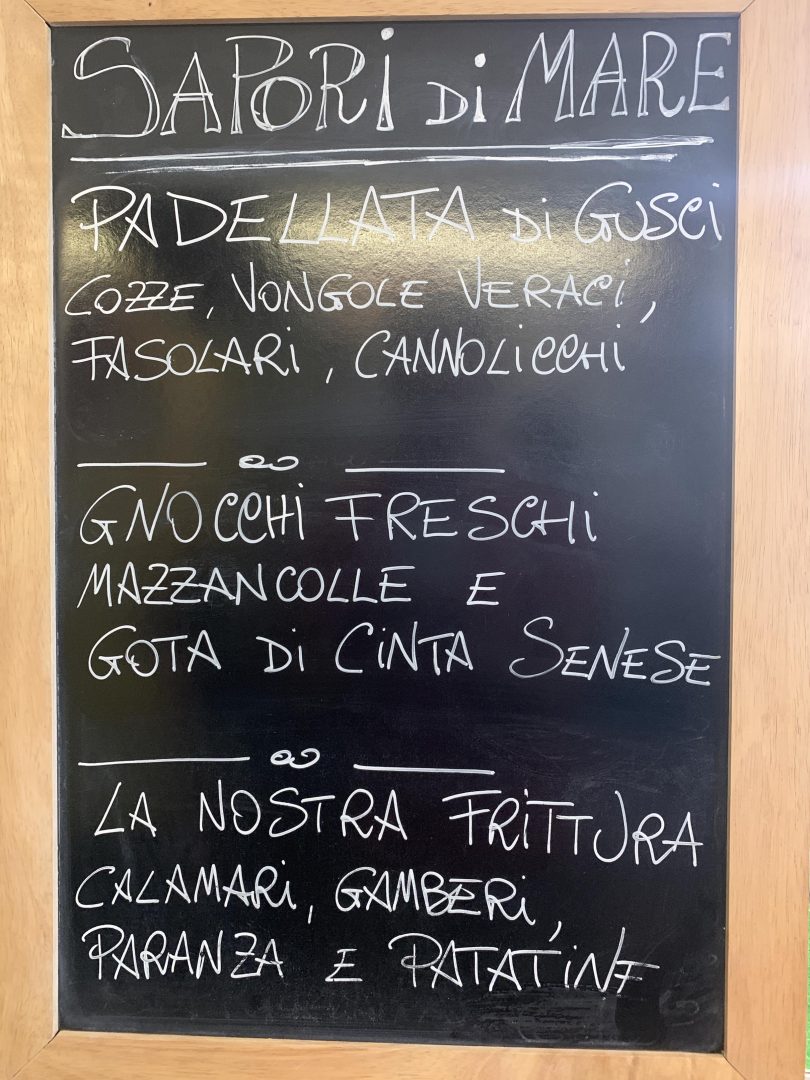 SAPORi Di MARE
PADELLATA Di GUSCi
COZZE, VONGOLE VERACi,
FASOLARi, CANNOLiCCHi
GNOCCHi FRESCHi
MAZZANCOLLE E
GOTA Di CiNTA SENESE
LA NOSTRA FRiTTURA
CALAMARi, GAMBERi,
PARANZA E PATATiNE